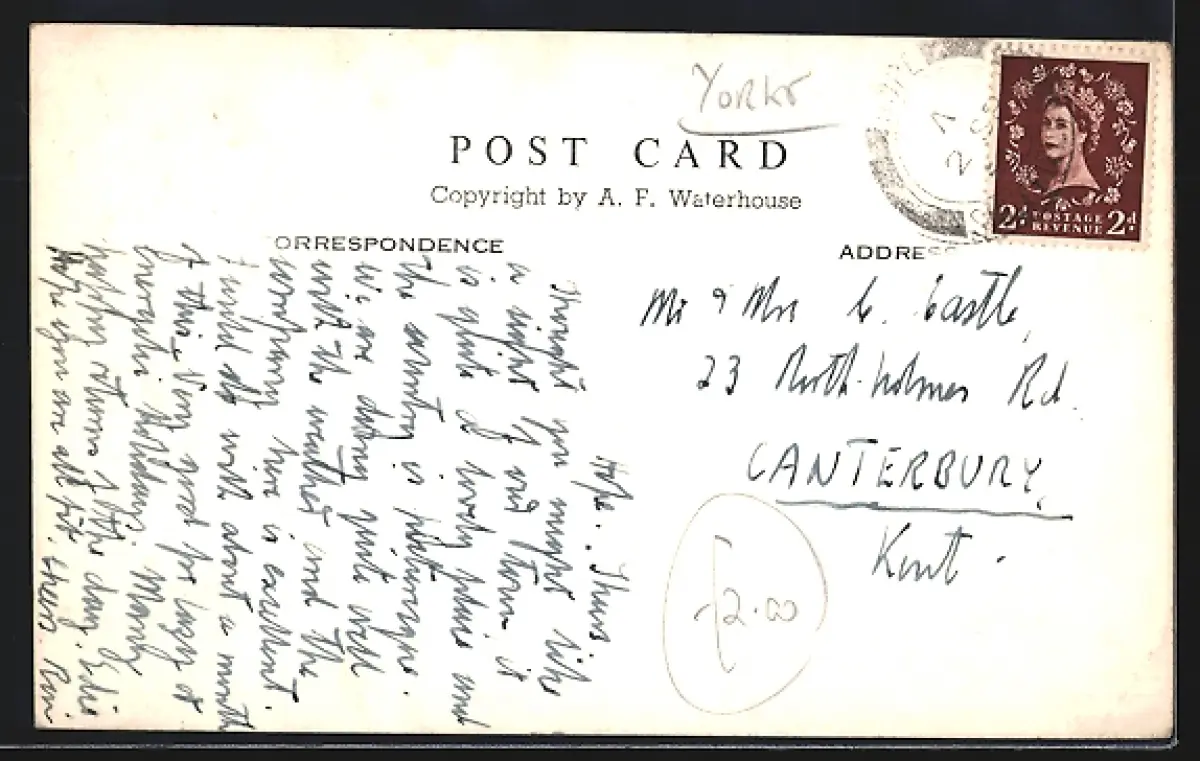 YORKS
POST CARD
Copyright by A. F. Waterhouse
ORRESPONDENCE
ADDRES
2d POSTAGE REVENUE 2d
Mr & Mrs C. Castle,
23 North Holmes Rd.
CANTERBURY,
Kent.
£2.00
Hope. Thurs.
Thought you might like
a sight of our Town. it
is quite a lovely place and
the country is picturesque.
We are doing quite well
with the weather and the
here is excellent.
I could do with about a month
of this. Very good for Lucy &
holiday. Many
day. Edie
Hope you are all right.